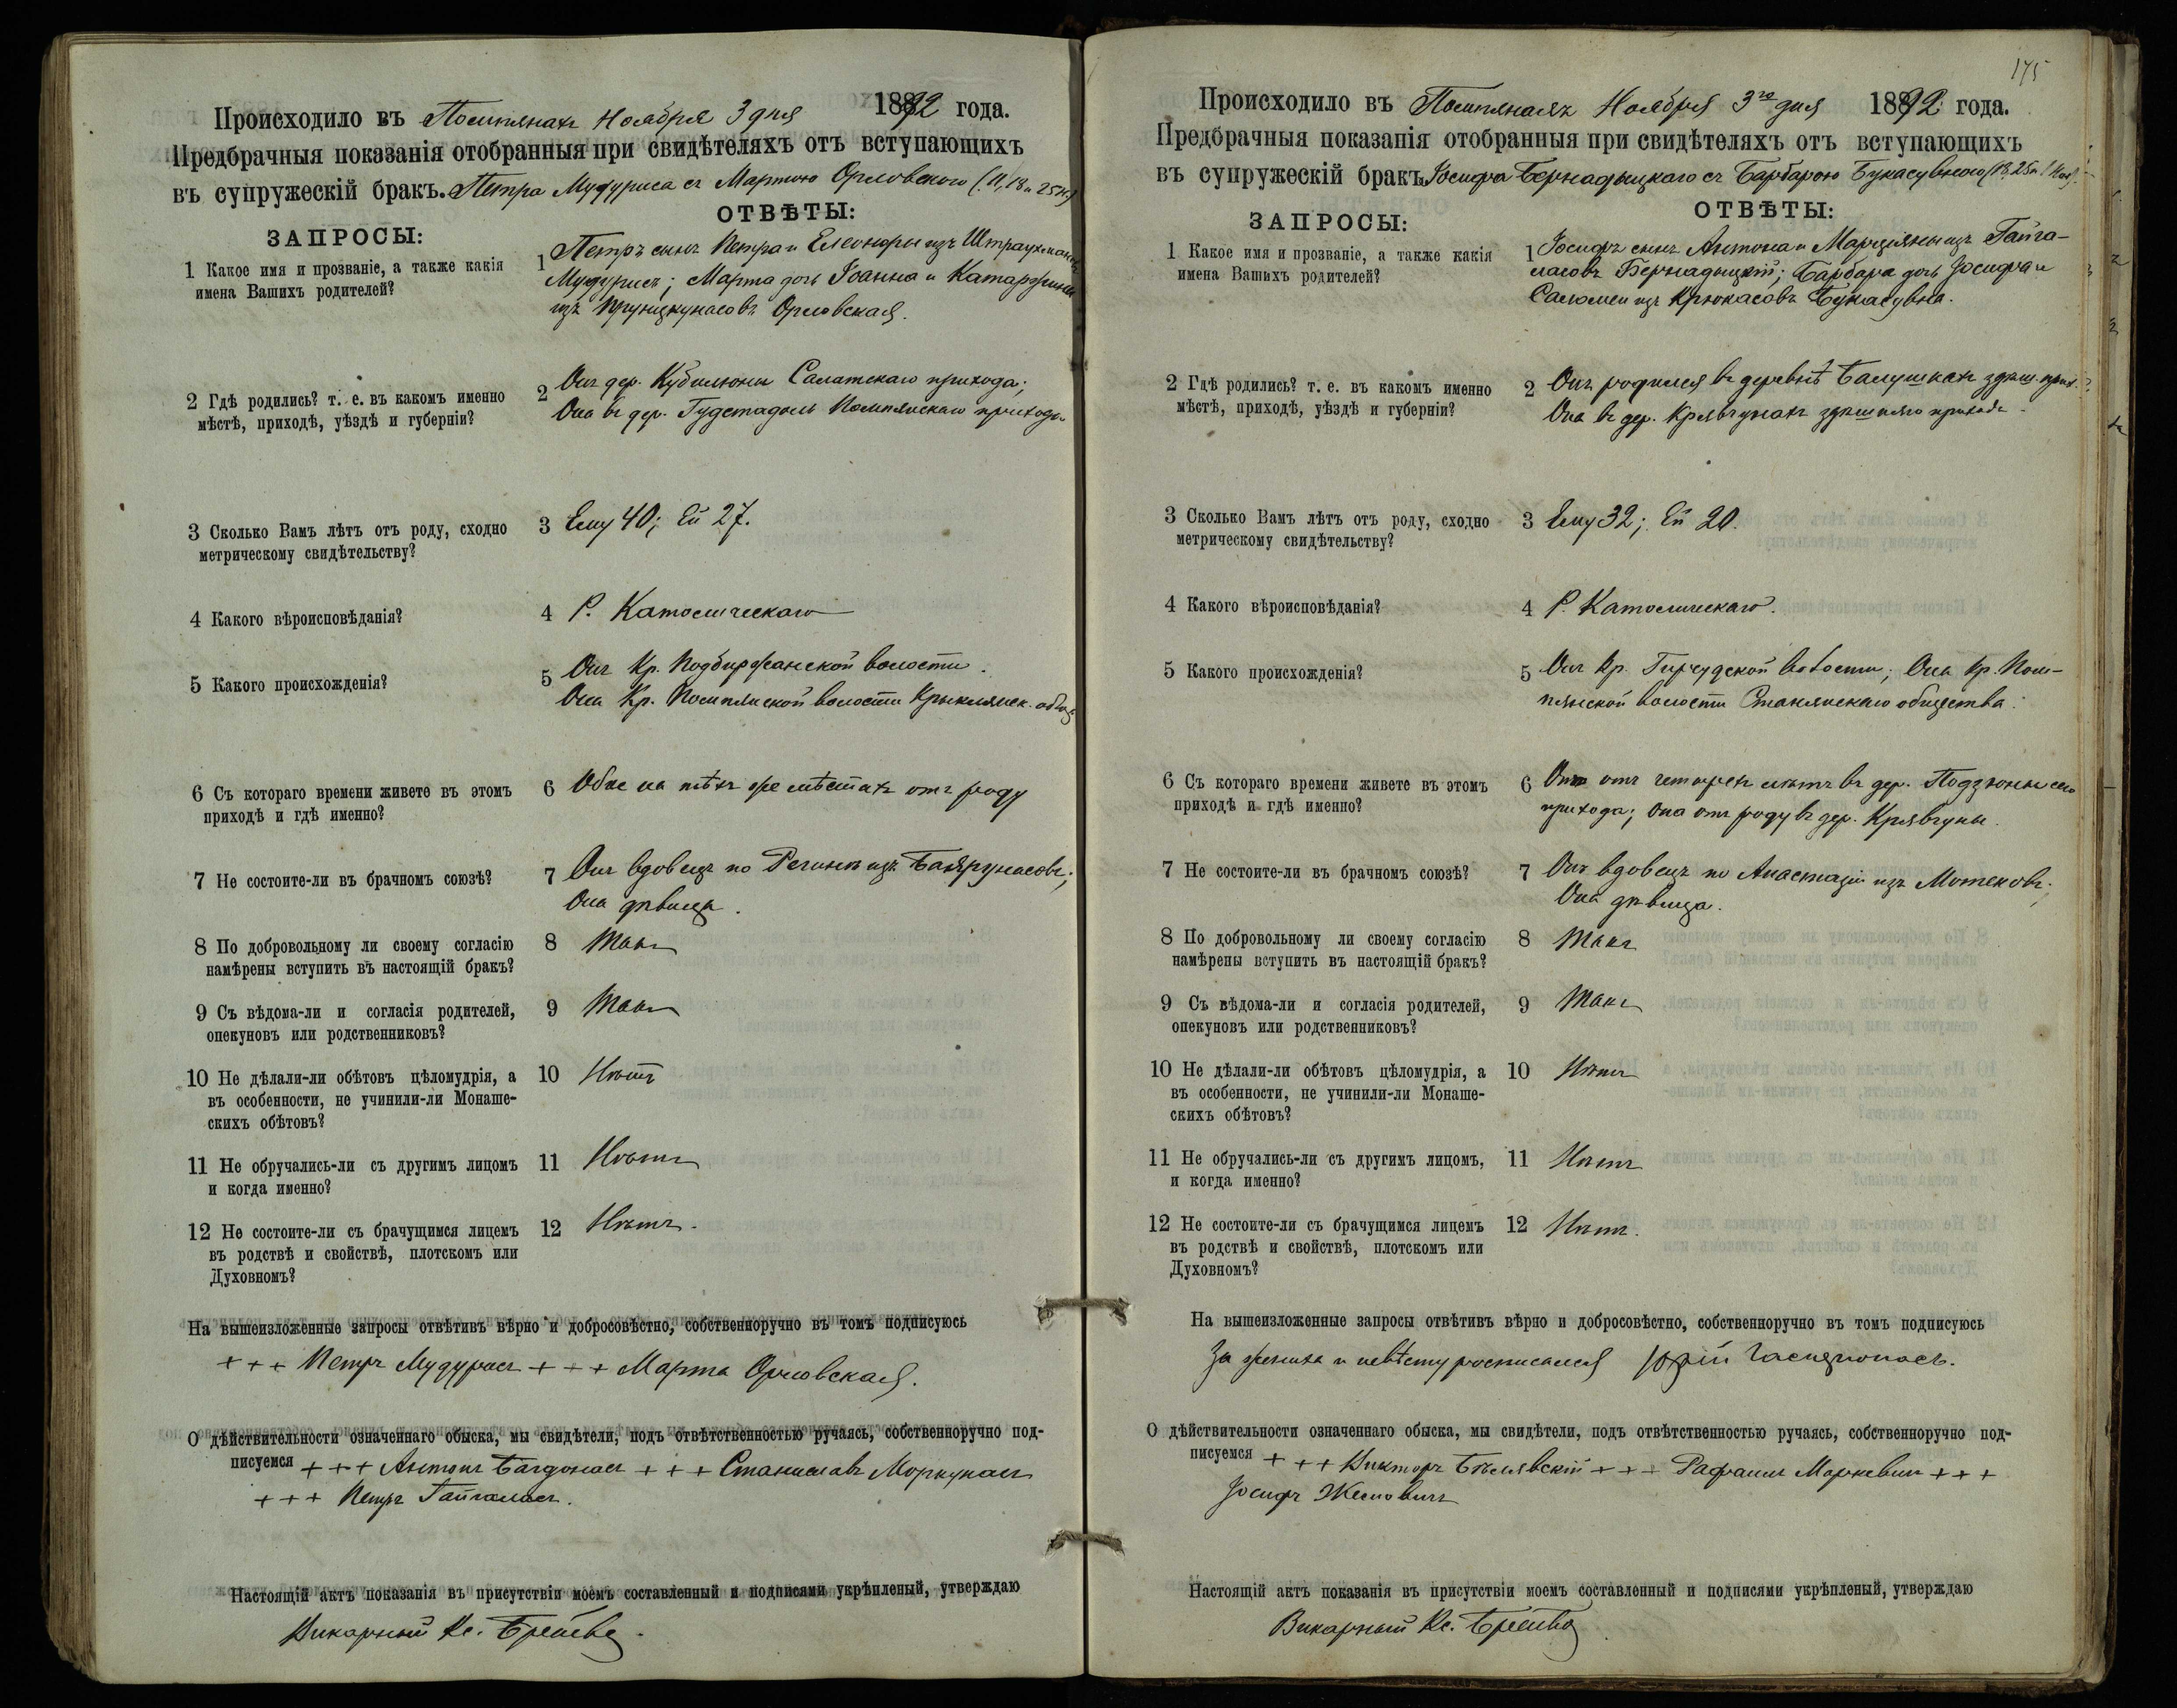 Происходило въ Помпянахъ Ноября 3 дня 1892 года.
Предбрачныя показанія отобранныя при свидѣтеляхъ отъ вступающихъ
въ супружескій бракъ. Петра Мудуриса съ Мартою Орловскою (11, 18 и 25
ЗАПРОСЫ:
ОТВѢТЫ:
1 Какое имя и прозваніе, а также какія
имена Вашихъ родителей?
1 Петръ сынъ Петра и Елеоноры изъ
Мудурисъ; Марта дочь Іоанна и Катаржины
изъ Орловская.
2 Гдѣ родились? т. е. въ какомъ именно
мѣстѣ, приходѣ, уѣздѣ и губерніи?
2 Онъ дер. Кубилюны Салатскаго прихода;
Она въ дер. Помпянскаго прихода
3 Сколько Вамъ лѣтъ отъ роду, сходно
метрическому свидѣтельству?
3 Ему 40; Ей 27.
4 Какого вѣроисповѣданія?
4 Р. Католическаго
5 Какого происхожденія?
5 Онъ Кр. Подбиржанской волости.
Она Кр. Помпянской волости
6 Съ котораго времени живете въ этомъ
приходѣ и гдѣ именно?
6 Обое на тѣхъ же мѣстахъ отъ роду
7 Не состоите-ли въ брачномъ союзѣ?
7 Онъ вдовецъ по Регинѣ изъ
Она дѣвица.
8 По добровольному ли своему согласію
намѣрены вступить въ настоящій бракъ?
8 Такъ
9 Съ вѣдома-ли и согласія родителей,
опекуновъ или родственниковъ?
9 Такъ
10 Не дѣлали-ли обѣтовъ цѣломудрія, а
въ особенности, не учинили-ли Монаше-
скихъ обѣтовъ?
10 Нѣтъ
11 Не обручались-ли съ другимъ лицомъ
и когда именно?
11 Нѣтъ
12 Не состоите-ли съ брачущимся лицемъ
въ родствѣ и свойствѣ, плотскомъ или
Духовномъ?
12 Нѣтъ.
На вышеизложенные запросы отвѣтивъ вѣрно и добросовѣстно, собственноручно въ томъ подписуюсь
+++ Петръ Мудурисъ +++ Марта Орловская.
О дѣйствительности означеннаго обыска, мы свидѣтели, подъ отвѣтственностью ручаясь, собственноручно под-
писуемся +++ Антонъ Багдонасъ +++ Станиславъ Моркунасъ
+++ Петръ Гайгаласъ.
Настоящій актъ показанія въ присутствіи моемъ составленный и подписями укрѣпленый, утверждаю
Викарный Кс.
175
Происходило въ Помпянахъ Ноября 3го дня 1892 года.
Предбрачныя показанія отобранныя при свидѣтеляхъ отъ вступающихъ
въ супружескій бракъ Іосифа Бернадыцкаго съ Барбарою
ЗАПРОСЫ:
ОТВѢТЫ:
1 Какое имя и прозваніе, а также какія
имена Вашихъ родителей?
1 Іосифъ сынъ Антона и Марціяны изъ Гайга-
ласовъ Бернадыцкій; Барбара дочь Іосифа и
Саломеи изъ Крюкасовъ
2 Гдѣ родились? т. е. въ какомъ именно
мѣстѣ, приходѣ, уѣздѣ и губерніи?
2 Онъ родился въ деревнѣ Балушкахъ здѣш. прих.
Она въ дер. Крявчунахъ здѣшняго прихода.
3 Сколько Вамъ лѣтъ отъ роду, сходно
метрическому свидѣтельству?
3 Ему 32; Ей 20.
4 Какого вѣроисповѣданія?
4 Р. Католическаго.
5 Какого происхожденія?
5 Онъ Кр. волости, Она Кр. Пом-
пянской волости общества.
6 Съ котораго времени живете въ этомъ
приходѣ и гдѣ именно?
6 Онъ отъ четырехъ лѣтъ въ дер. Подзюны сего
прихода; она отъ роду въ дер. Крявчуны.
7 Не состоите-ли въ брачномъ союзѣ?
7 Онъ вдовецъ по Анастазіи изъ
Она дѣвица.
8 По добровольному ли своему согласію
намѣрены вступить въ настоящій бракъ?
8 Такъ
9 Съ вѣдома-ли и согласія родителей,
опекуновъ или родственниковъ?
9 Такъ
10 Не дѣлали-ли обѣтовъ цѣломудрія, а
въ особенности, не учинили-ли Монаше-
скихъ обѣтовъ?
10 Нѣтъ
11 Не обручались-ли съ другимъ лицомъ,
и когда именно?
11 Нѣтъ
12 Не состоите-ли съ брачущимся лицемъ
въ родствѣ и свойствѣ, плотскомъ или
Духовномъ?
12 Нѣтъ.
На вышеизложенные запросы отвѣтивъ вѣрно и добросовѣстно, собственноручно въ томъ подписуюсь
За жениха и невѣсту росписался
О дѣйствительности означеннаго обыска, мы свидѣтели, подъ отвѣтственностью ручаясь, собственноручно под-
писуемся +++ Викторъ Бѣлявскій +++ Рафаилъ Маркевичъ +++
Іосифъ
Настоящій актъ показанія въ присутствіи моемъ составленный и подписями укрѣпленый, утверждаю
Викарный Кс.